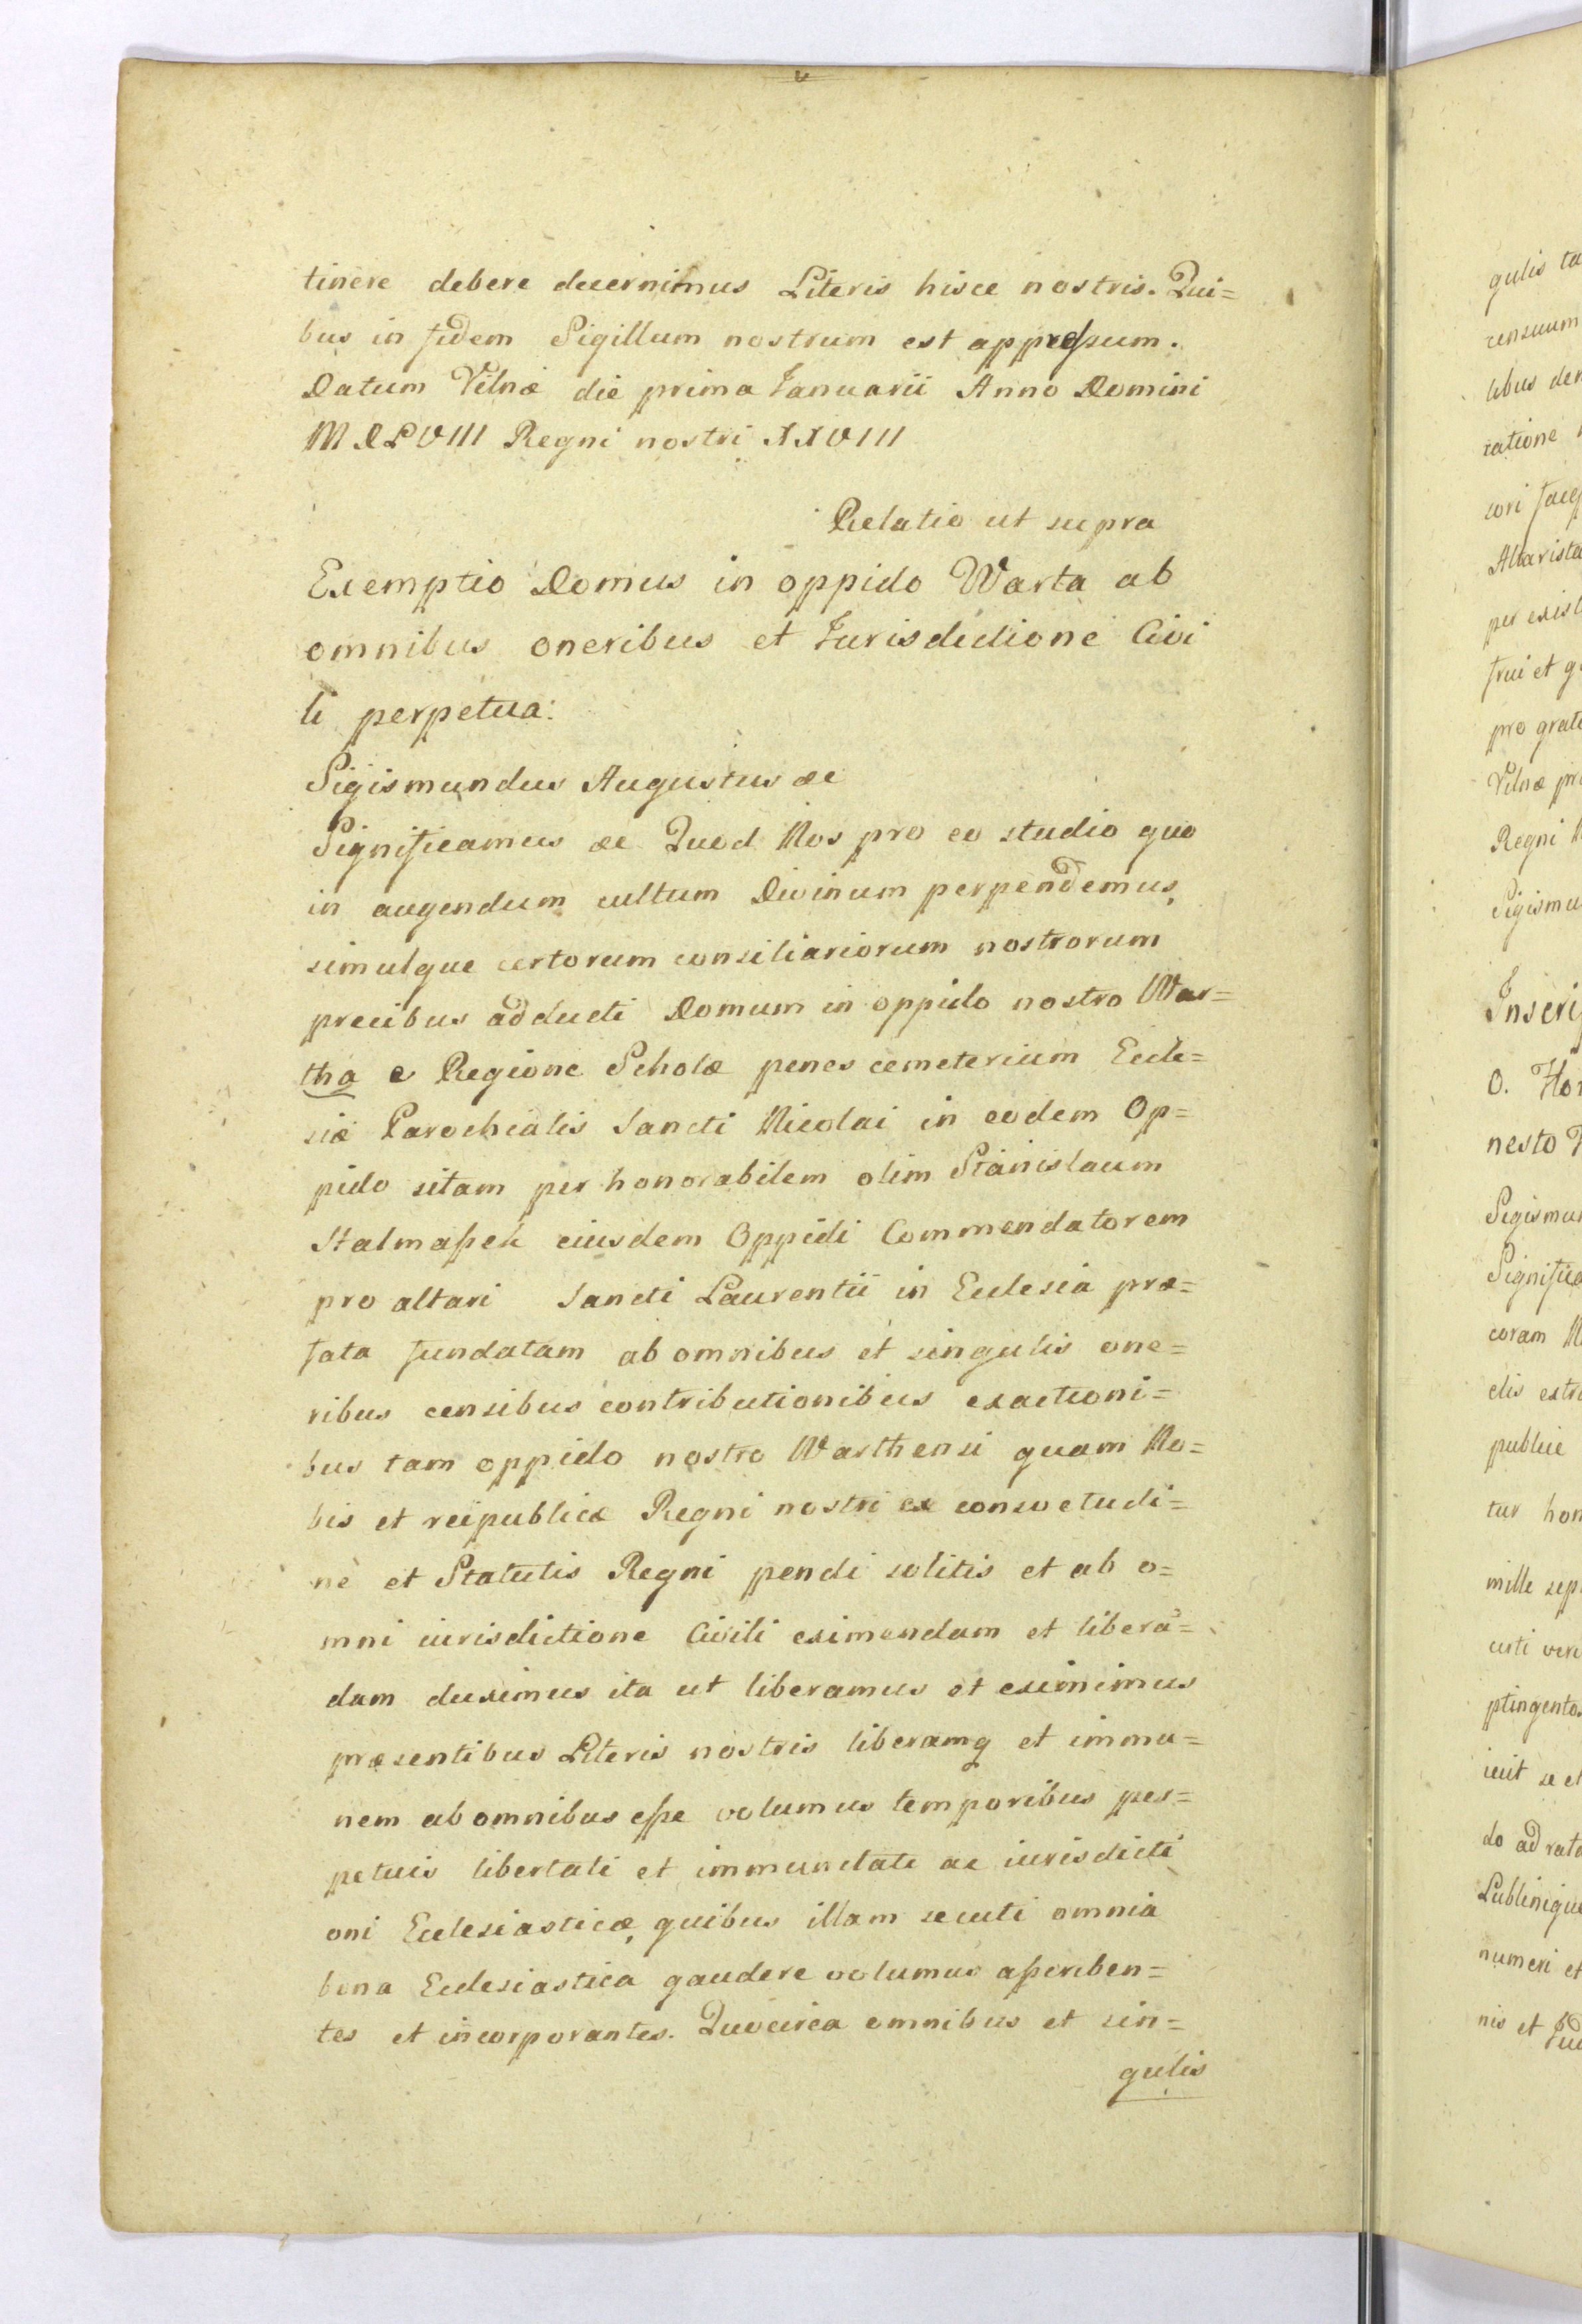 tinere debere decernimus Literis hisce nostris. Qui=
bus in fidem Sigillum nostrum est appressum.
Datum Vilnæ die prima Januarii Anno Domini
MDLVIII Regni nostri XXVIII
Relatio ut supra
Exemptio Domus in oppido Warta ab
omnibus oneribus et Jurisdictione Civi
li perpetua:
Sigismundus Augustus &c
Significamus &c Quod Nos pro eo studio quo
in augendum cultum Divinum perpendemus,
simulque certorum consiliariorum nostrorum
precibus adducti Domum in oppido nostro War=
tha e Regione Scholæ penes cemeterium Eccle=
siæ Parochialis Sancti Nicolai in eodem Op=
pido sitam per honorabilem olim Stanislaum
Stalmaszek eiusdem Oppidi Commendatorem
pro altari Sancti Laurentii in Ecclesia præ=
fata fundatam ab omnibus et singulis one=
ribus censibus contributionibus exactioni=
bus tam oppido nostro Warthensi quam No=
bis et reipublicæ Regni nostri ex consvetudi=
ne et Statutis Regni pendi solitis et ab o=
mni iurisdictione Civili eximendam et libera=
dam duximus ita ut liberamus et eximimus
præsentibus Literis nostris liberamq et immu=
nem ab omnibus esse volumus temporibus per=
petuis libertati et immunitati ac iurisdicti
oni Ecclesiasticæ, quibus illam secuti omnia
bona Ecclesiastica gaudere volumus asscriben=
tes et incorporantes. Quocirca omnibus et sin=
gulis
gulis
censuum
ratione
Altarista
frui et
Vilnæ
Regni
0.
nesto
coram
publice
tur
mille
do ad
numeri et
nis et